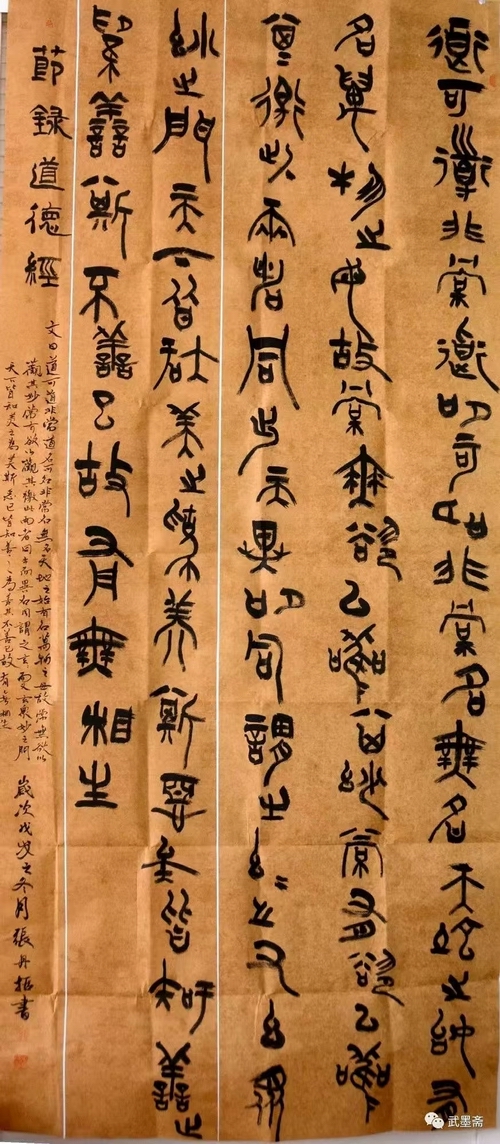 道可道非常道名可名非常名無名天地之始有
名萬物之母故常無欲以觀其妙常有欲以觀
其徼此兩者同出而異名同謂之玄〻之又玄眾
妙之門天下皆知美之為美斯惡已皆知善之
為善斯不善已故有無相生
節録道德經
文曰道可道非常道名可名非常名無名天地之始有名萬物之母故常無欲以
觀其妙常有欲以觀其徼此兩者同出而異名同謂之玄玄之又玄眾妙之門
天下皆知美之為美斯惡已皆知善之為善其不善已故有無相生
歲次戊戌之冬月張丹書
武墨斋